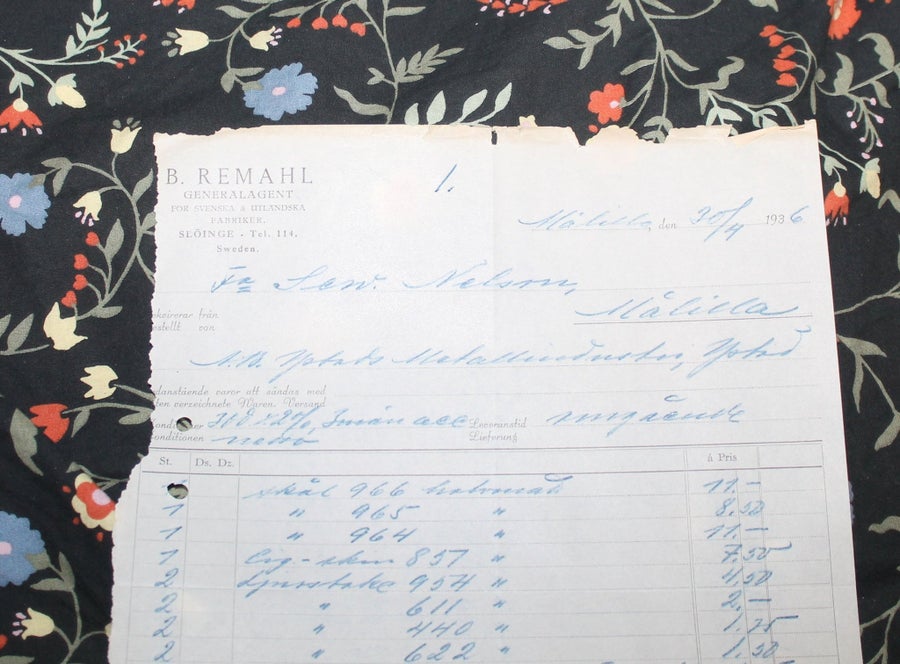 B. REMAHL
GENERALAGENT
FÖR SVENSKA & UTLÄNDSKA
FABRIKER.
SLÖINGE - Tel. 114.
Sweden.
1.
Målilla den 30/4 1936
Fa Sew. Nelson,
Målilla
ekvirerar från
estellt von
A.B. Ystads Metallindustri, Ystad
danstående varor att sändas med
ten verzeichnete Waren. Versand
onditioner
onditionen netto
3 mån acc
Leveranstid omgående
Lieferung
St. Ds. Dz. á Pris
1 skål 966 11.-
1 " 965 " 8.50
1 " 964 " 11.-
1 Cig-skrin 857 " 7.50
2 Ljusstake 954 " 4.50
2 " 611 " 2.-
2 " 440 " 1.75
2 " 622 " 1.50